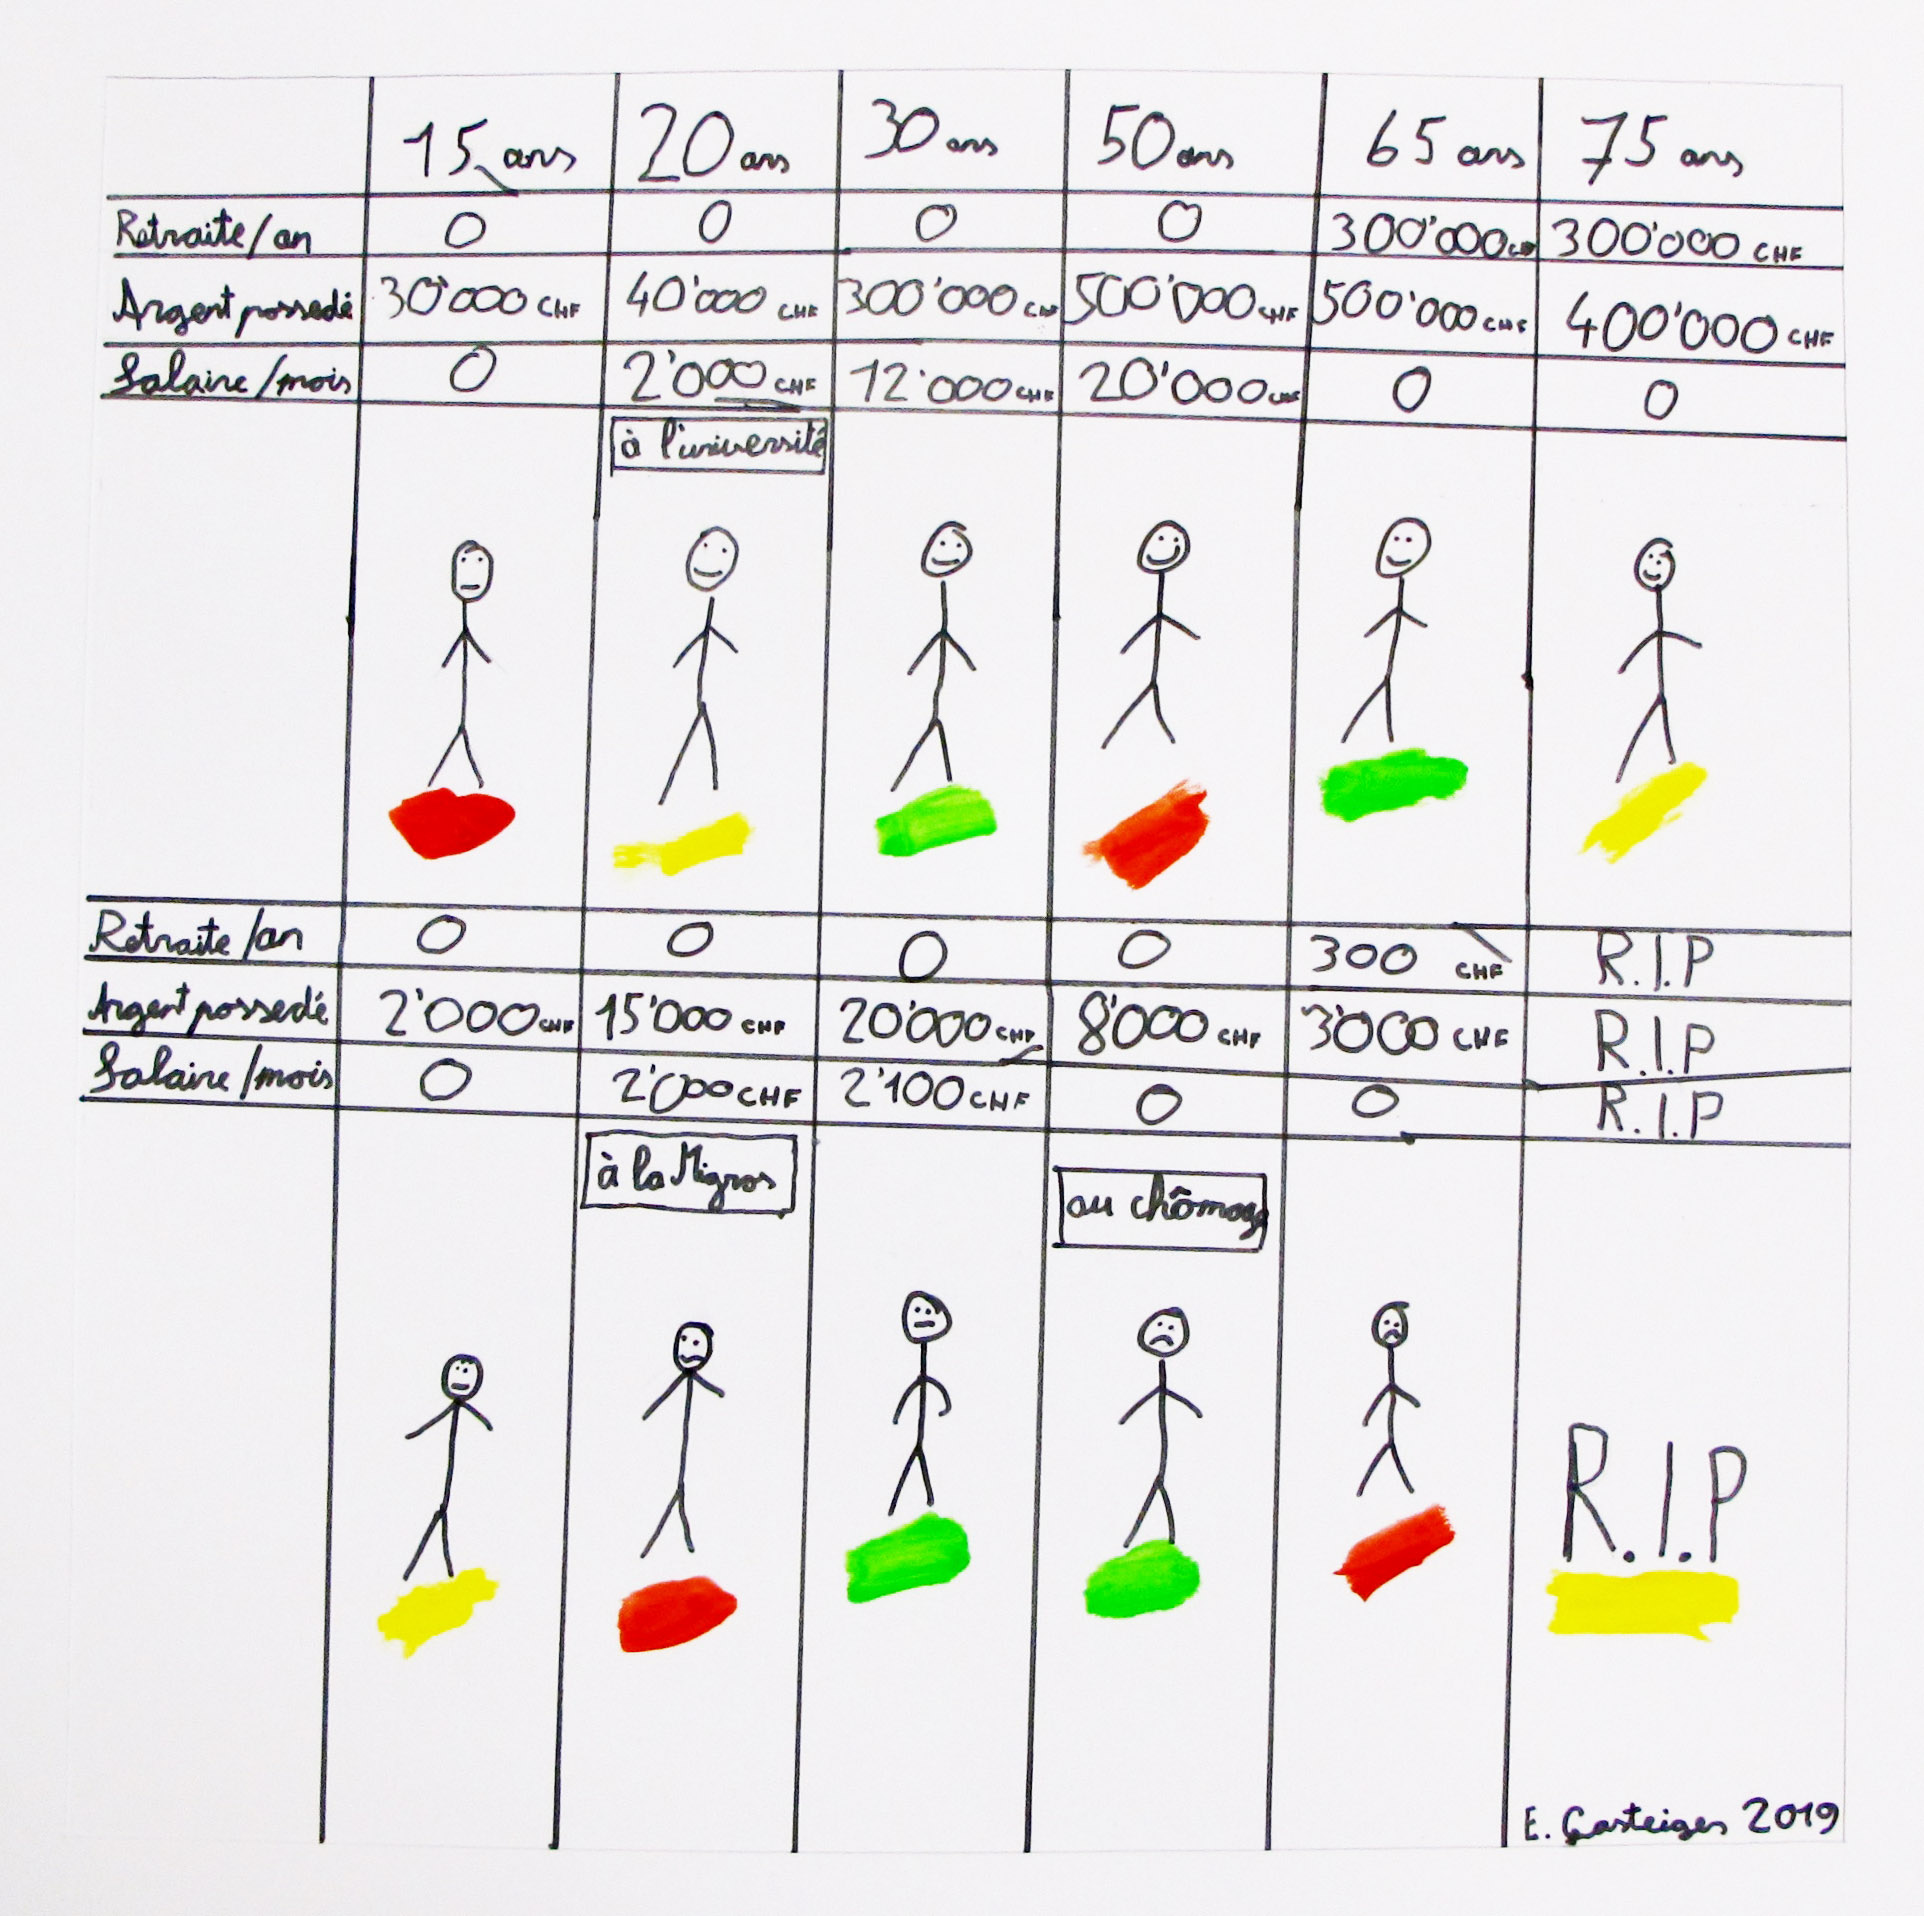 15 ans 20 ans 30 ans 50 ans 65 ans 75 ans
Retraite/an 0 0 0 0 300'000 CHF 300'000 CHF
Argent possedé 30'000 CHF 40'000 CHF 300'000 CHF 500'000 CHF 500'000 CHF 400'000 CHF
Salaire/mois 0 2'000 CHF 12'000 CHF 20'000 CHF 0 0
à l'université
Retraite/an 0 0 0 0 300 CHF R.I.P
Argent possedé 2'000 CHF 15'000 CHF 20'000 CHF 8'000 CHF 3'000 CHF R.I.P
Salaire/mois 0 2'000 CHF 2'100 CHF 0 0 R.I.P
à la Migros au chômage
R.I.P
E. Gasteiger 2019